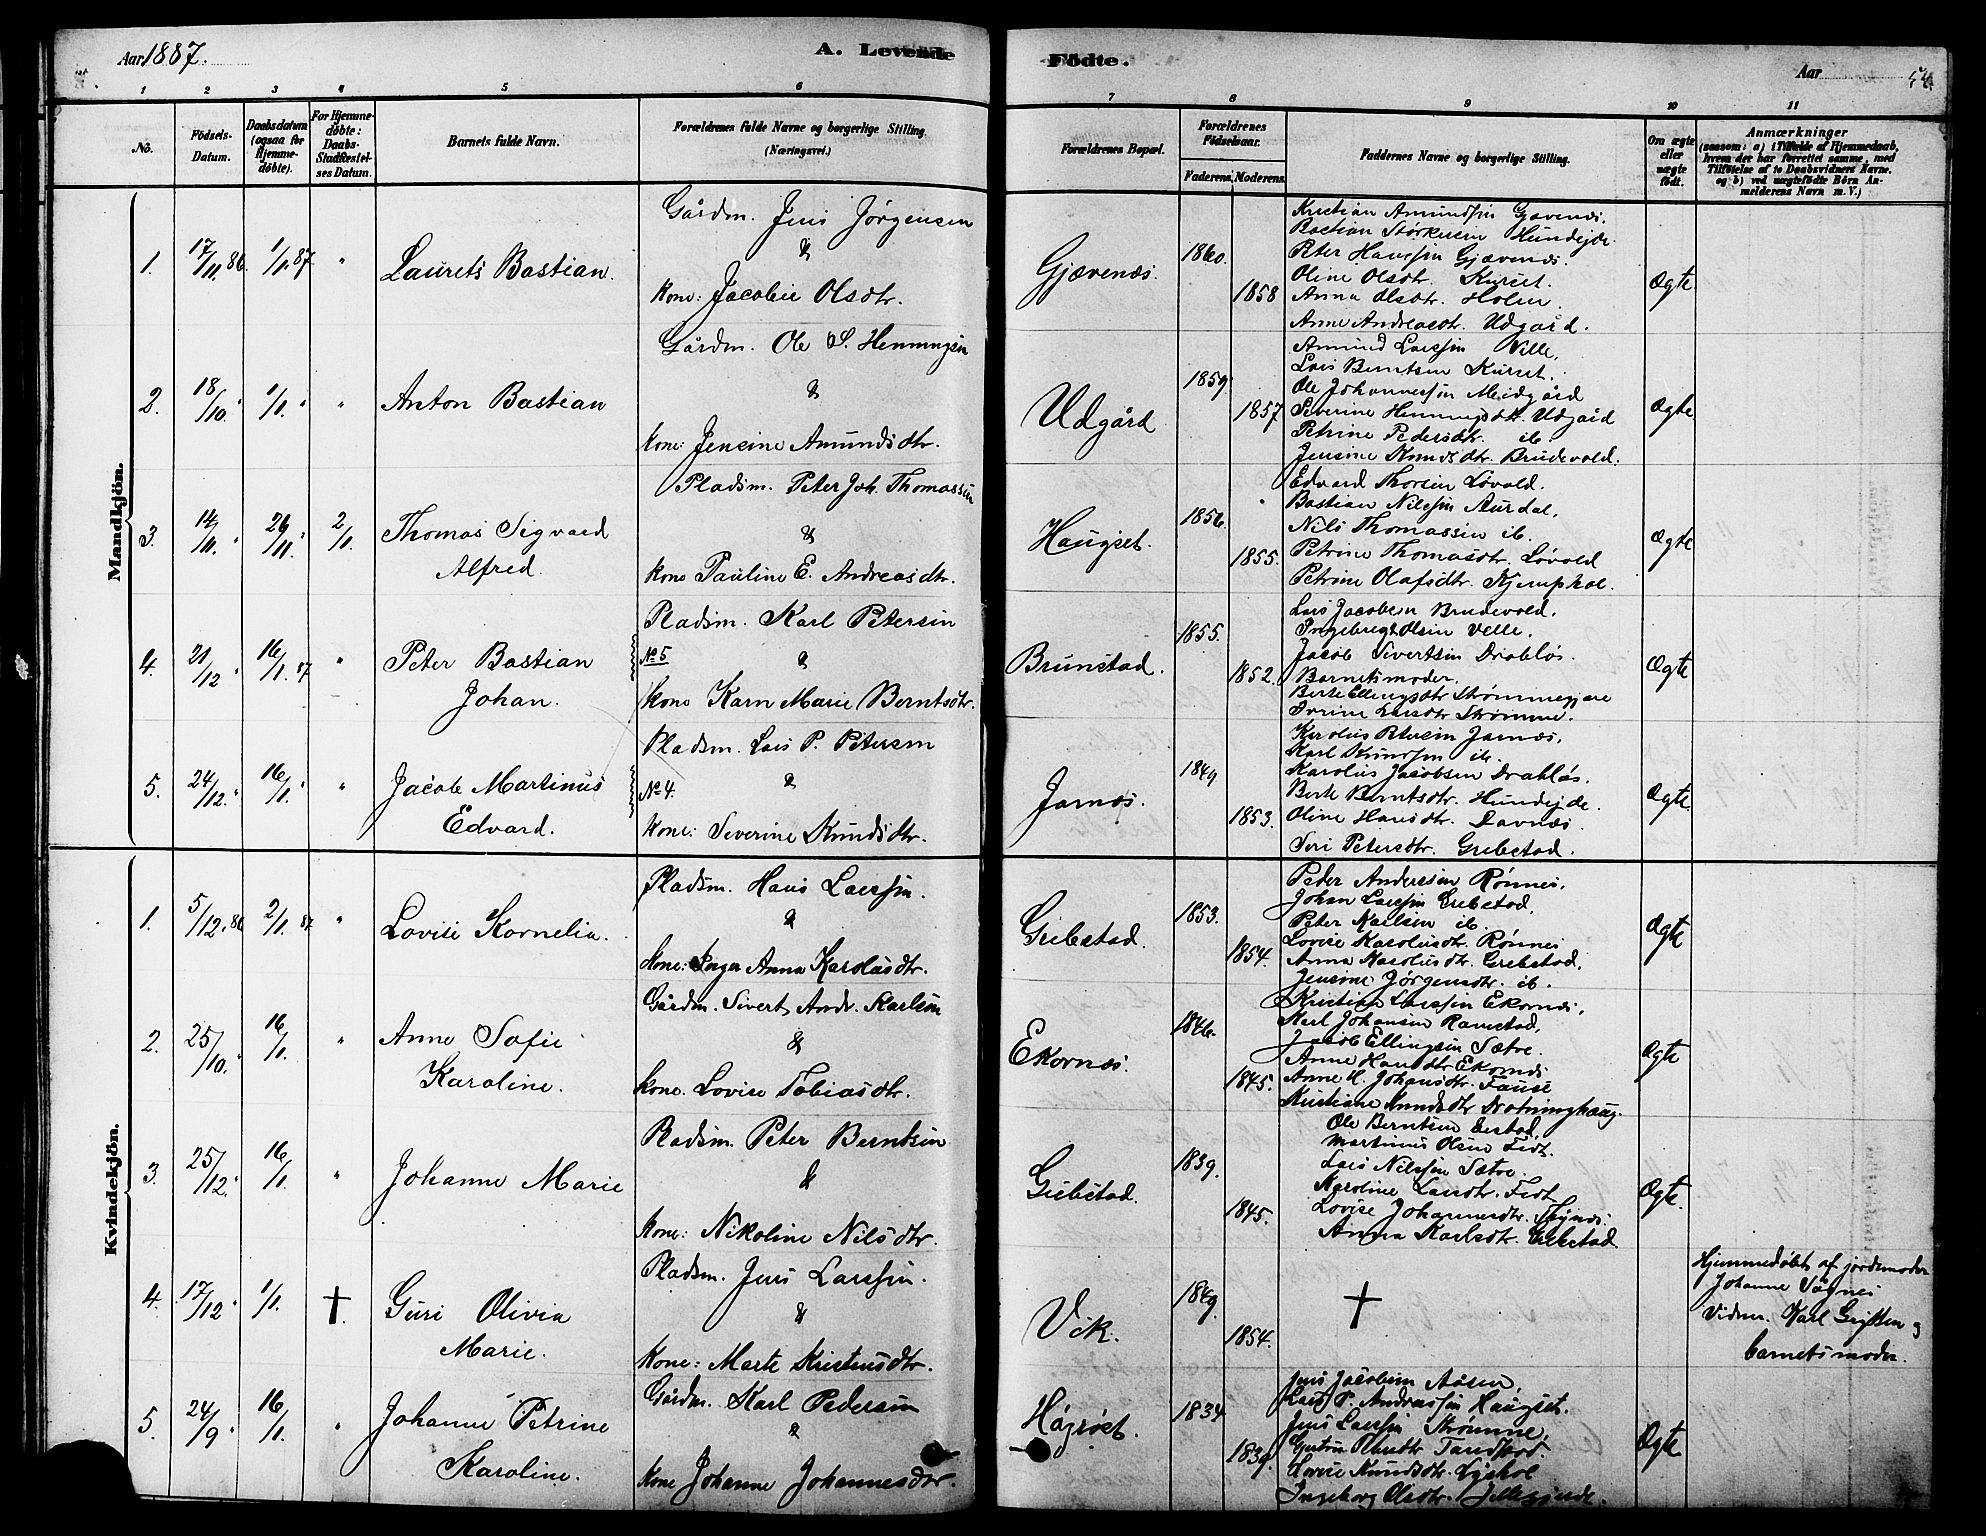 Aar 1887.
A. Levende
Födte.
Aar
1 2 3 4 5 6 7 8 9 10 11
No.
Födsels-Datum.
Daabsdatum (ogsaa for Hjemmedøbte).
For Hjemmedøbte: Daabs-Stadfæstelses Datum.
Barnets fulde Navn.
Forældrenes fulde Navne og borgerlige Stilling.
(Næringsvei.)
Forældrenes Bopæl.
Forældrenes Födselsaar.
Faderens. Moderens.
Faddernes Navne og borgerlige Stilling.
Om ægte eller uægte født.
Anmærkninger
(saasom: a) i Tilfælde af Hjemmedaab, hvem der har forrettet samme, med Tilföielse af to Daabsvidners Navne. og b) ved uægtefödte Börn Anmelderens Navn m. V.)
Mandkjön.
1. 17/11 86. 1/1 87 "
Laurets Bastian.
Gårdm. Jens Jörgensen
&
kone: Jacobie Olsdtr.
Gjævenæs.
1860.
1858
Kristian Amundsen Gjævenæs.
Bastian Størkersen Hundejde.
Peter Hanssen Gjævenæs.
Oline Olsdtr. Kurset.
Anna Olsdtr. Holen.
Anne Andreasdtr. Udgård.
Ægte
2. 18/10 " 1/1 " "
Anton Bastian
Gårdm. Ole S. Henningsen
&
kone: Jensine Amundsdtr.
Udgård
1859
1857
Amund Larssen Velle.
Lars Berntsen Kurset.
Ole Johannessen Meidgård
Severine Henningsdtr. Udgård
Petrine Pedersdtr. ib.
Jensine Knudsdtr. Brudevold.
Ægte
3. 14/10 " 26/11 " 2/1
Thomas Sigvard
Alfred.
Pladsm. Peter Joh. Thomassen
&
kone Pauline E. Andreasdtr.
Haugset.
1856.
1855.
Edvard Thorsen Løvold.
Bastian Nilssen Aurdal.
Nils Thomassen ib.
Petrine Thomasdtr. Løvold
Petrine Olafsdtr.
Ægte
4. 21/12 " 16/1 87 "
Peter Bastian
Johan.
Pladsm. Karl Petersen
No 5
&
kone Karn Marie Berntsdtr.
Brunstad.
1855.
1852.
Lars Jacobsen Brudevold.
Ingebregt Olsen Velle.
Jacob Sivertsen Drabløs.
Barnets moder.
Berte Ellingsdtr Strømmegjære
Larsdtr Strømme.
Ægte
5. 24/12. " 16/1 " "
Jacob Martinus
Edvard.
Pladsm. Lars P. Petersen
No 4.
&
kone: Severine Knudsdtr.
Jarnes.
1849
1853.
Karolus Petersen Jarnes.
Karl Knudsen ib.
Karolus Jacobsen Drabløs.
Berte Berntsdtr. Hundejde.
Oline Hansdtr. Davnæs.
Seri Petersdtr. Grebstad.
Ægte
Kvindekjön.
1. 5/12. 86 2/1. 87 "
Lovise Kornelia.
Pladsm. Hans Larssen.
&
kone: Inger Anna Karolusdtr.
Grebstad.
1853.
1854.
Peder Anderssen Rønnes.
Johan Larssen Grebstad.
Peter Karlsen ib.
Lovise Karolusdtr. Rønnes
Anna Karolusdtr. Grebstad.
Jensine Jørgensdtr. ib.
Ægte
2. 25/10. 16/1. "
Anne Sofie
Karoline.
Gårdm. Sivert Andr. Karlsen
&
kone. Lovise Tobiasdtr.
Ekornes.
1846.
1845.
Kristian Larssen Ekornes.
Karl Johansen Ramstad.
Jacob Ellingsen Sætre.
Anne Hansdtr Ekornes
Anne H. Johansdtr. Fause
Kristiane Knudsdtr Drotninghaug.
Ægte
3. 25/12. 16/1. "
Johanne Marie
Pladsm. Peter Berntsen
&
kone: Nikoline Nilsdtr.
Grebstad.
1839.
1845.
Ole Berntsen
Martinus Olsen Fidt.
Lars Nilssen Sætre.
Karoline Larsdtr. Fidt
Lovise Johannesdtr.
Anna Karlsdtr. Grebstad
Ægte.
4. 17/12 " 1/1. †.
Guri Olivia
Marie.
Pladsm. Jens Larssen.
&
kone: Marte Kristensdtr.
Vik.
1849
1854.
†
Hjemmedøbt af jordemoder
Johanne
Vidner. Karl og
barnets moder.
5. 24/9 16/1. "
Johanne Petrine
Karoline.
Gårdm. Karl Pedersen
&
kone Johanne Johannesdtr.
Högröst.
1834
1839.
Jens Jacobsen Aasen.
Lars P. Andreassen Haugset.
Jens Larssen Strømme.
Lovise Knudsdtr.
Ingeborg Olsdtr.
Ægte